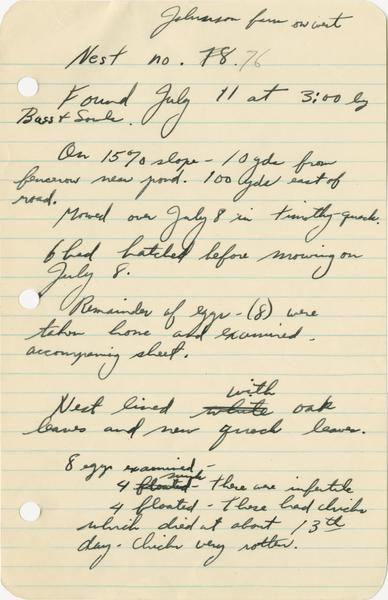 Johnson farm on west
Nest no. 78. 76
Found July 11 at 3:00 by
Bass &
On 15% slope - 10 yds from
fencerow near pond. 100 yds east of
road.
Mowed over July 8 in timothy-quack.
6 had hatched before mowing on
July 8.
Remainder of eggs - (8) were
taken home and examined -
accompanying sheet.
with
Nest lined white oak
leaves and new quack leaves.
8 eggs examined -
sunk
4 floated - these were infertile
4 floated - These had chicks
which died at about 13th
day - Chicks very rotten.